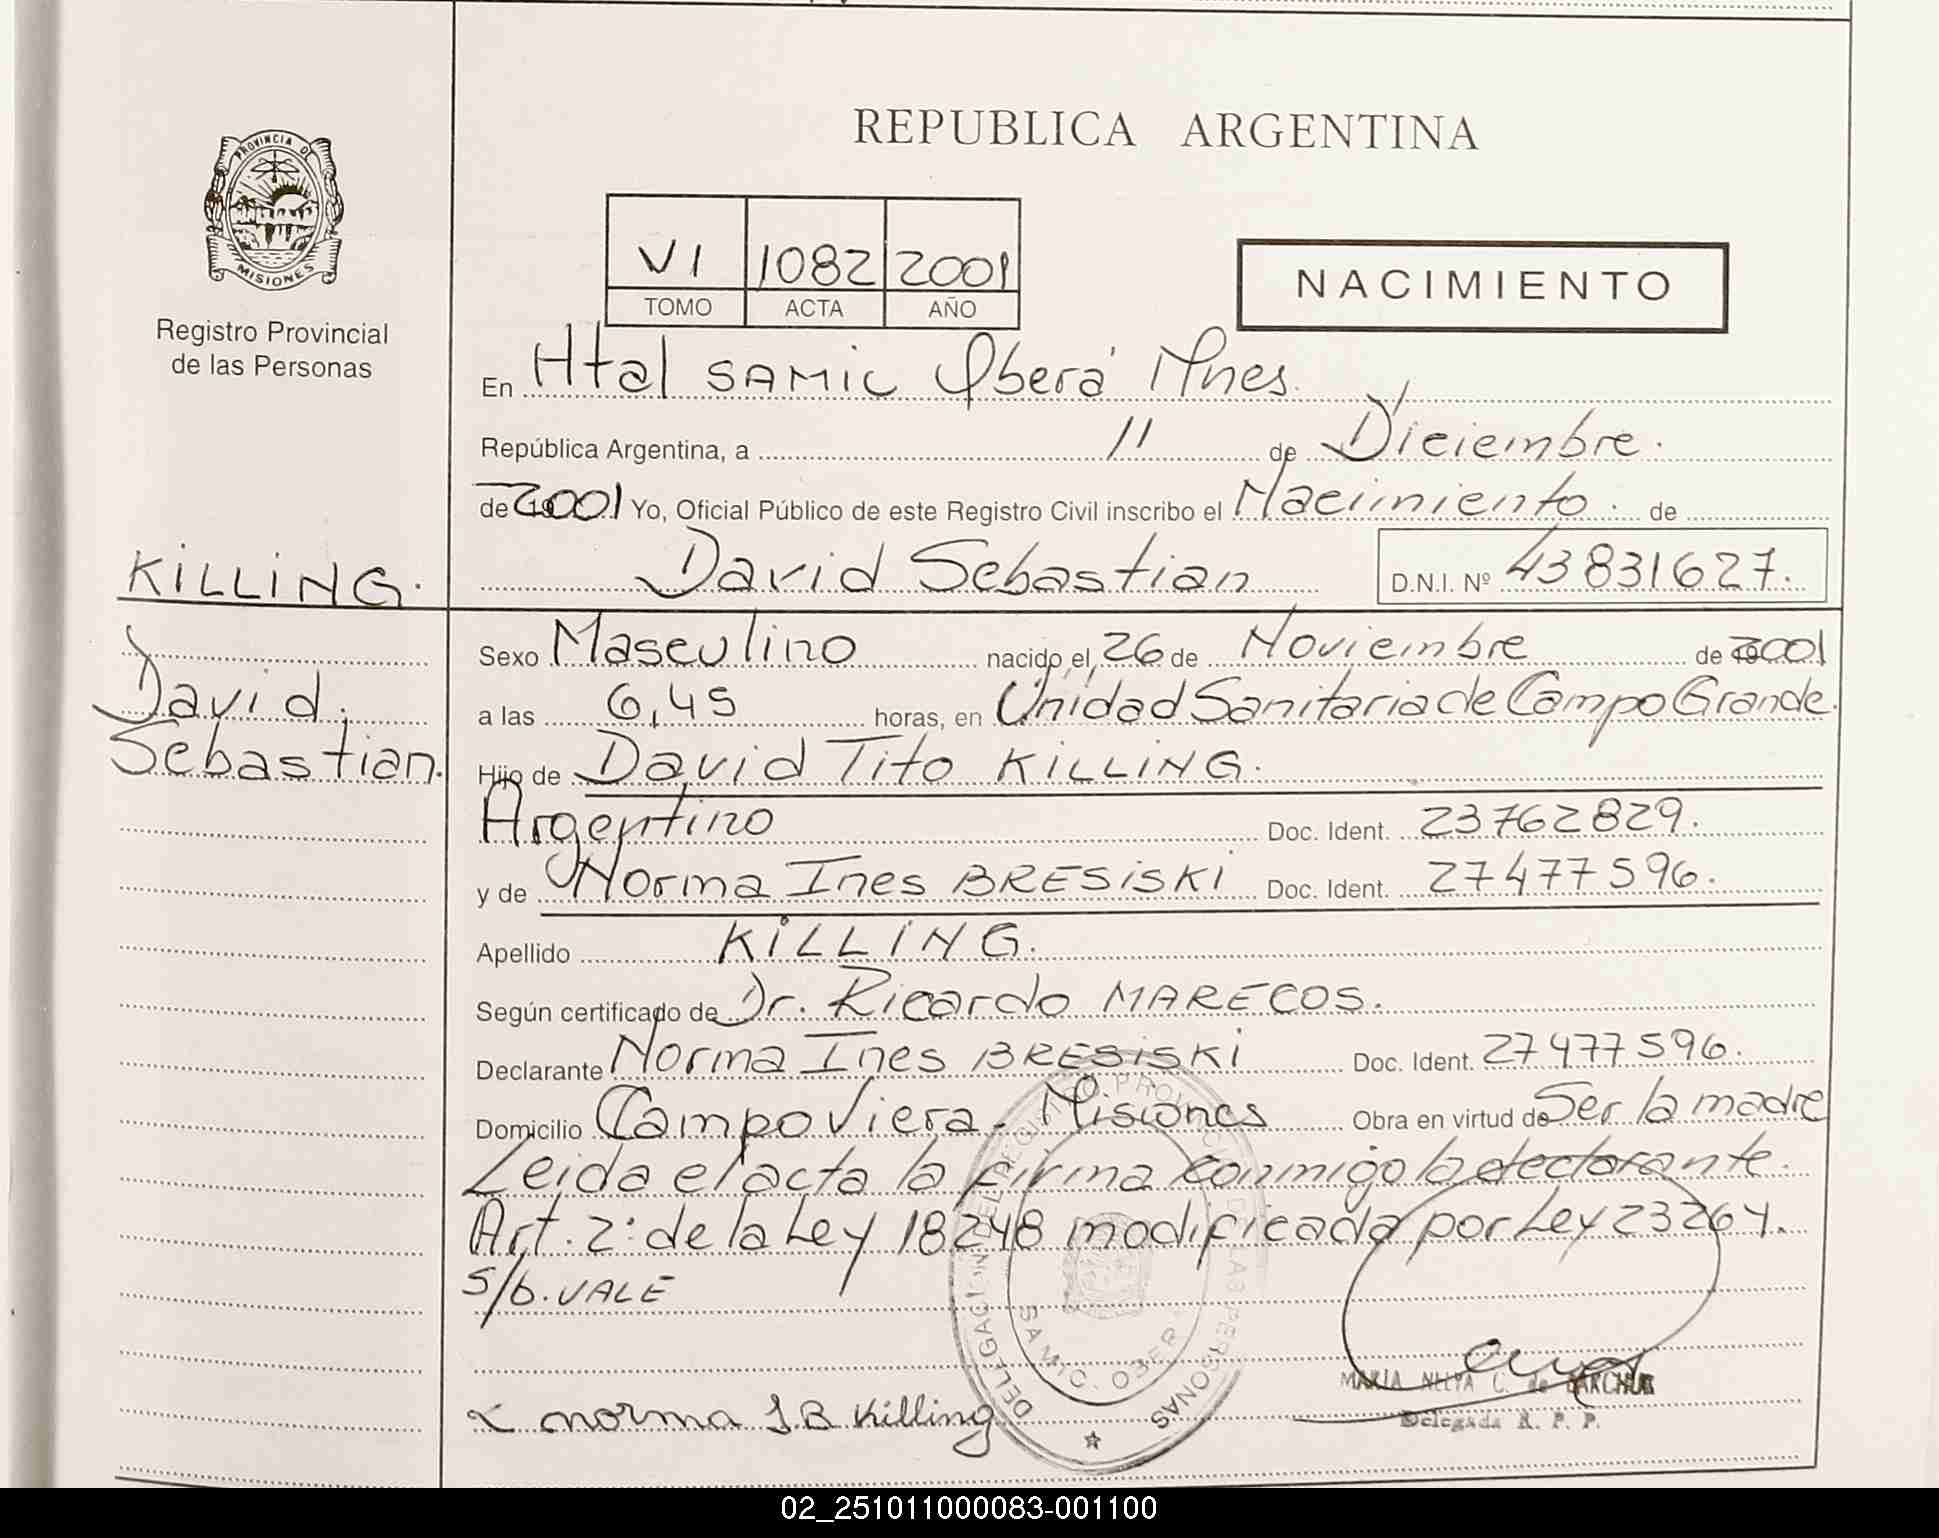 REPUBLICA ARGENTINA
PROVINCIA D
MISIONES
Registro Provincial
de las Personas
VI 1082 2001
TOMO ACTA AÑO
NACIMIENTO
En Htal SAMIC Oberá Mnes.
República Argentina, a 11 de Diciembre.
de 2001 Yo, Oficial Público de este Registro Civil inscribo el Nacimiento. de
David Sebastian D.N.I. Nº 43831627.
KILLING.
David
Sebastian.
Sexo Masculino nacido el 26 de Noviembre de 2001
a las 6,45 horas, en Unidad Sanitaria de Campo Grande.
Hijo de David Tito KILLING.
Argentino Doc. Ident. 23762829.
y de Norma Ines BRESISKI Doc. Ident. 27477596.
Apellido KILLING.
Según certificado de Dr. Ricardo MARECOS.
Declarante Norma Ines BRESISKI Doc. Ident. 27477596.
Domicilio Campo Viera - Misiones Obra en virtud de Ser la madre
Leida el acta la firma conmigo la declarante.
Art. 2: de la Ley 18248 modificada por Ley 23264.
S/b. VALE
norma I.B Killing
DELEGACION DEL REGISTRO PROVINCIAL DE LAS PERSONAS
SAMIC. OBER
MARIA NELYA C. de
Delegada R. P. P.
02_251011000083-001100